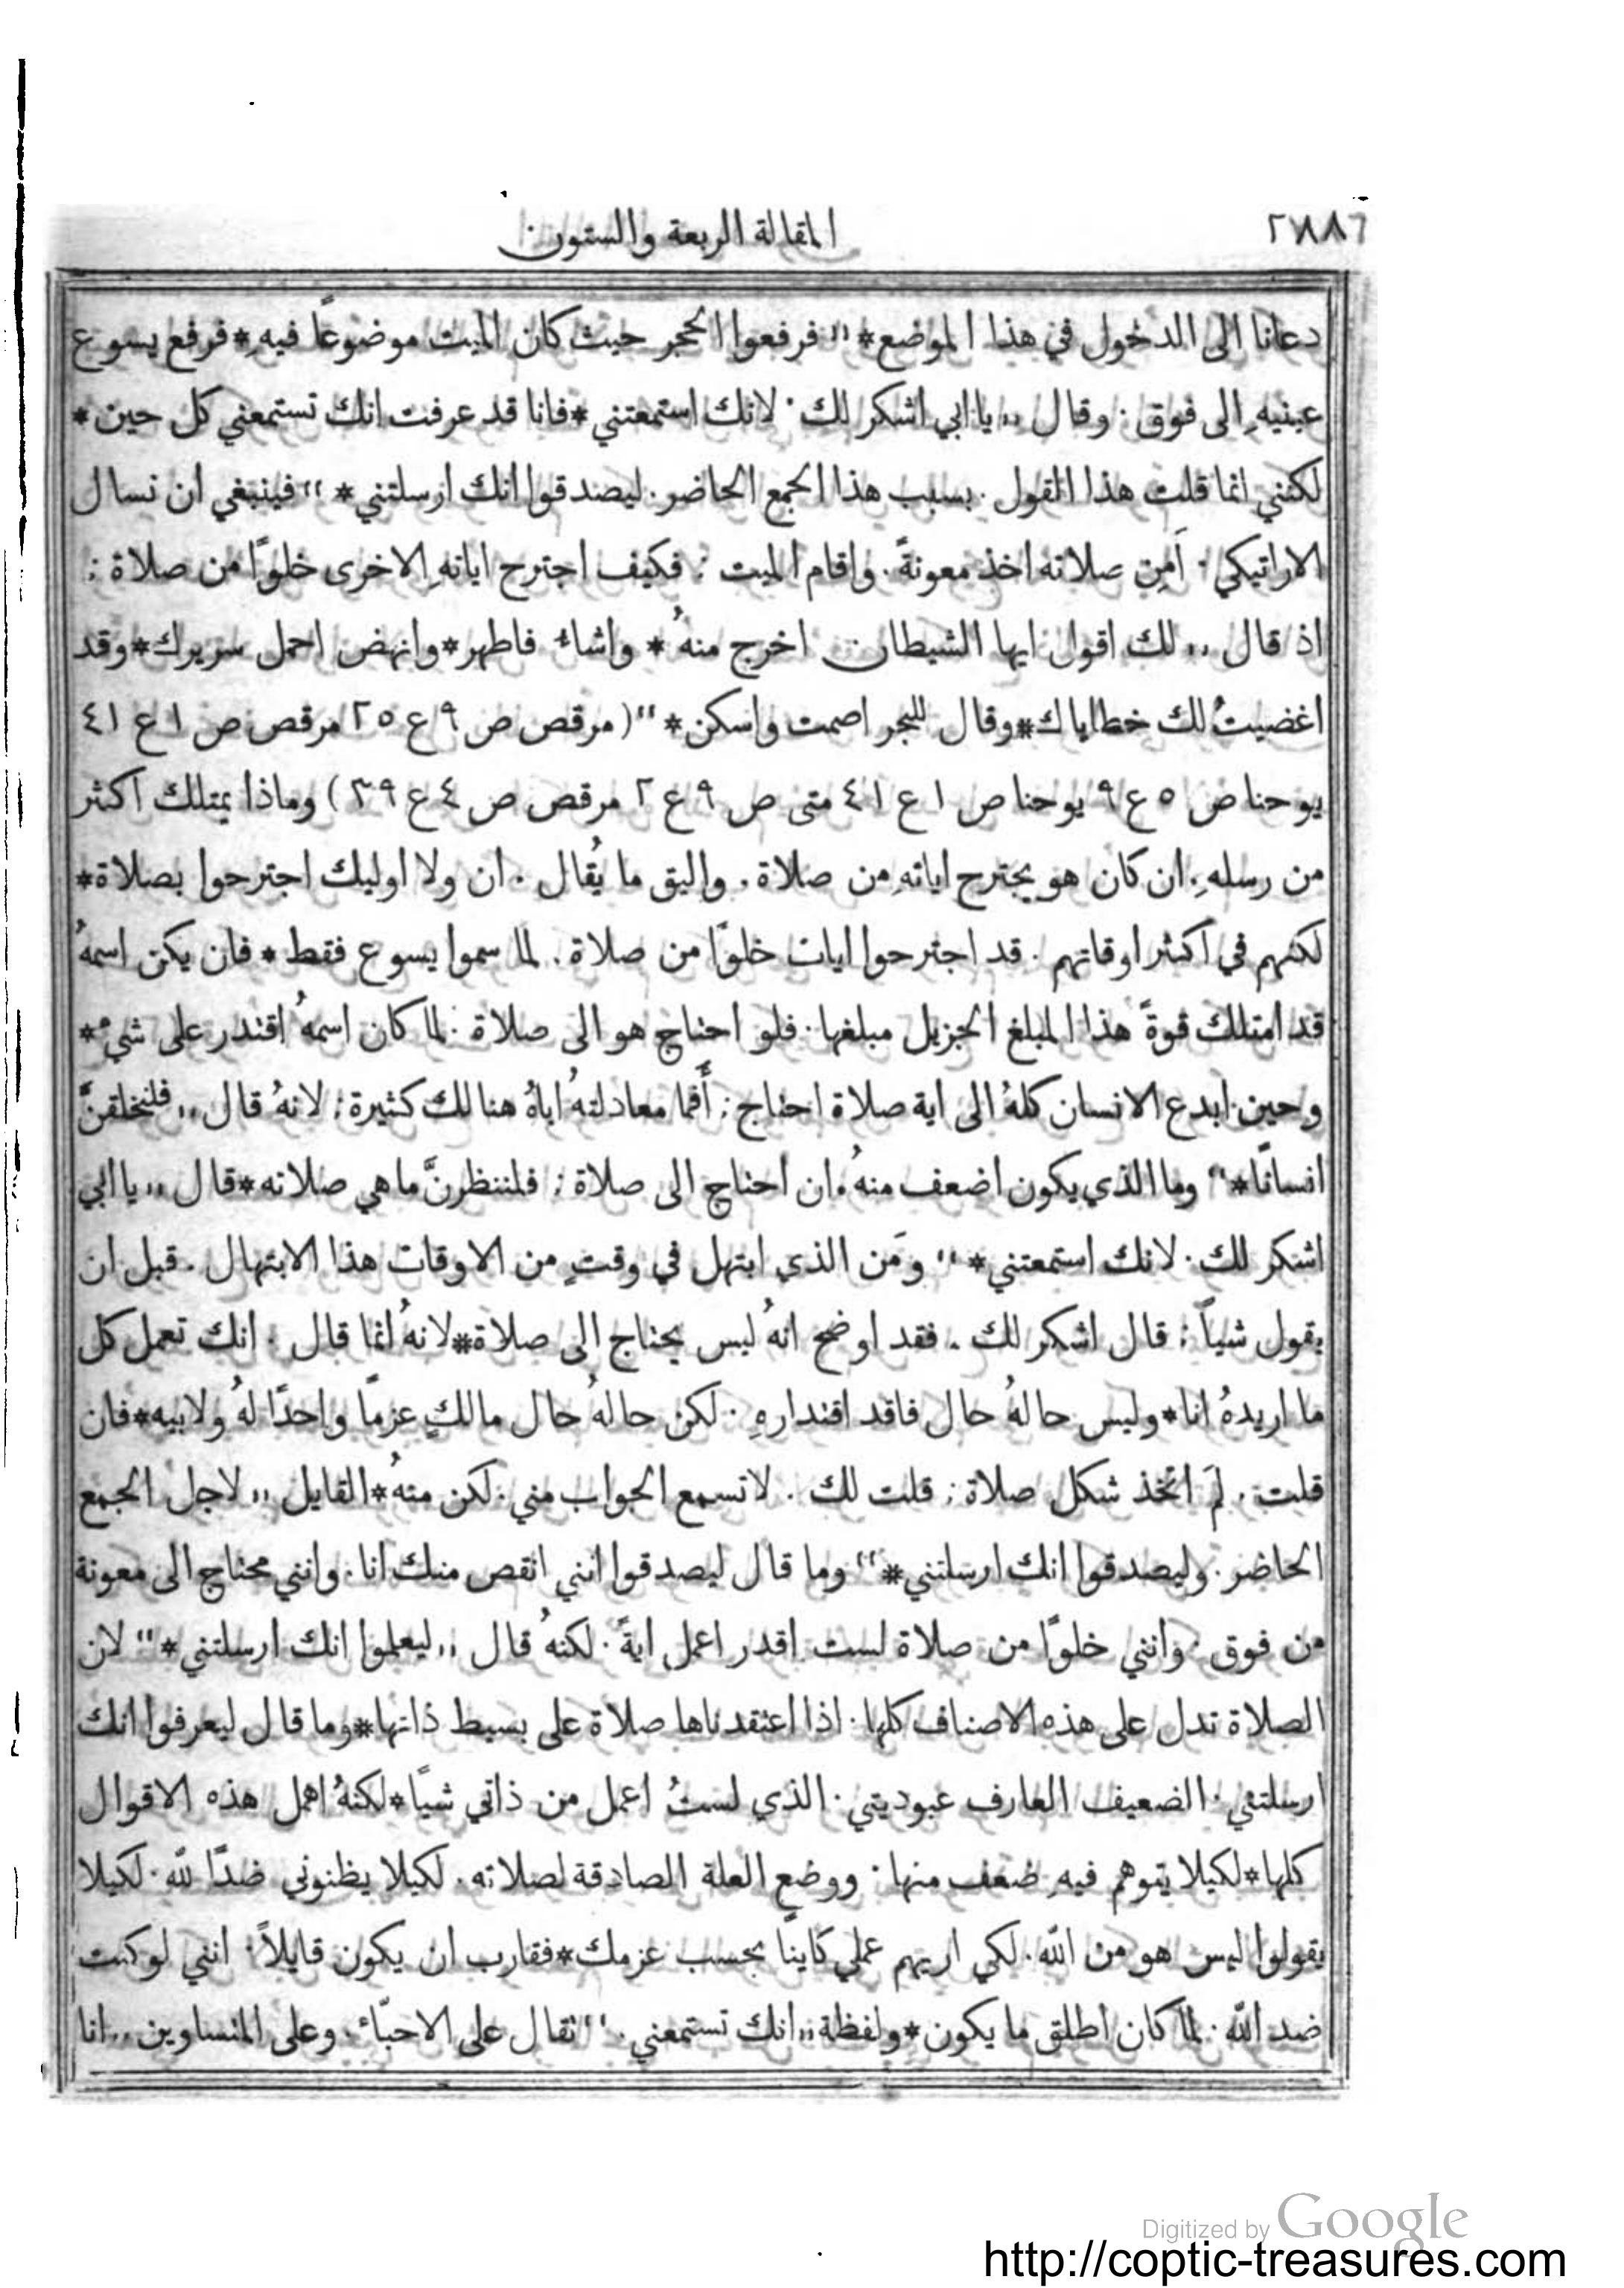 المقالة الربعة والستون
دعانا الى الدخول في هذا الموضع* ,, فرفعوا الحجر حيث كان الميت موضوعًا فيهِ*فرفع يسوع
عينيهِ الى فوق. وقال ,, يا ابي اشكر لك. لانك استمعتني*فانا قد عرفت انك تستمعني كل حين*
لكنني انما قلت هذا القول. بسبب هذا الجمع الحاضر. ليصدقوا انك ارسلتني*" فينبغي ان نسال
الاراتيكي. اَمِن صلاته اخذ معونةً. واقام الميت: فكيف اجترح اياتهِ الاخرى خلوًا من صلاة:
اذ قال ,, لك اقول ايها الشيطان اخرج منهُ* واشاء فاطهر*وانهض احمل سريرك*وقد
اغضيتُ لك خطاياك*وقال للبحر اصمت واسكن*" (مرقص ص ٩ ع ٢٥ مرقص ص ١ ع ٤١
يوحنا ص ٥ ع ٩ يوحنا ص ١ ع ٤١ متى ص ٩ ع ٢ مرقص ص ٤ ع ٣٩) وماذا يمتلك اكثر
من رسلهِ. ان كان هو يجترح اياتهِ من صلاة. واليق ما يُقال. ان ولا اوليك اجترحوا بصلاة*
لكنهم في اكثر اوقاتهم. قد اجترحوا ايات خلوًا من صلاة. لما سموا يسوع فقط* فان يكن اسمهُ
قد امتلك قوةً هذا المبلغ الجزيل مبلغها. فلو احتاج هو الى صلاة. لما كان اسمهُ اقتدر على شيء*
وحين ابدع الانسان كلهُ الى اية صلاة احتاج: أَفما معادلتهُ اباهُ هنالك كثيرة: لانهُ قال ,, فلنخلقنَّ
انسانًا*" وما الذي يكون اضعف منهُ. ان احتاج الى صلاة: فلننظرنَّ ما هي صلاته*قال ,, يا ابي
اشكر لك. لانك استمعتني*" ومَن الذي ابتهل في وقتٍ من الاوقات هذا الابتهال. قبل ان
يقول شياً: قال اشكر لك. فقد اوضح انهُ ليس يحتاج الى صلاة*لانهُ انما قال. انك تعمل كل
ما اريدهُ انا*وليس حالهُ حال فاقد اقتدارهِ. لكن حالهُ حال مالكٍ عزمًا واحدًا لهُ ولابيه*فان
قلت. لِمَ اتخذ شكل صلاة: قلت لك. لا تسمع الجواب مني. لكن منهُ*القايل ,, لاجل الجمع
الحاضر. وليصدقوا انك ارسلتني*" وما قال ليصدقوا انني انقص منك انا. وانني محتاج الى معونة
من فوق. وانني خلوًا من صلاة لست اقدر اعمل ايةً. لكنهُ قال ,, ليعلموا انك ارسلتني*" لان
الصلاة تدل على هذه الاصناف كلها. اذا اعتقدناها صلاة على بسيط ذاتها*وما قال ليعرفوا انك
ارسلتني. الضعيف العارف عبوديتي. الذي لستُ اعمل من ذاتي شيًا*لكنهُ اهمل هذه الاقوال
كلها*لكيلا يتوهم فيهِ ضعف منها. ووضع العلة الصادقة لصلاته. لكيلا يظنوني ضدًا لله. لكيلا
يقولوا ليس هو من الله. لكي اريهم عملي كاينًا بحسب عزمك*فقارب ان يكون قايلاً. انني لو كنت
ضد الله. لما كان اطلق ما يكون*ولفظة ,, انك تستمعني." تقال على الاحبّاء. وعلى المتساوين ,, انا
Digitized by Google
http://coptic-treasures.com